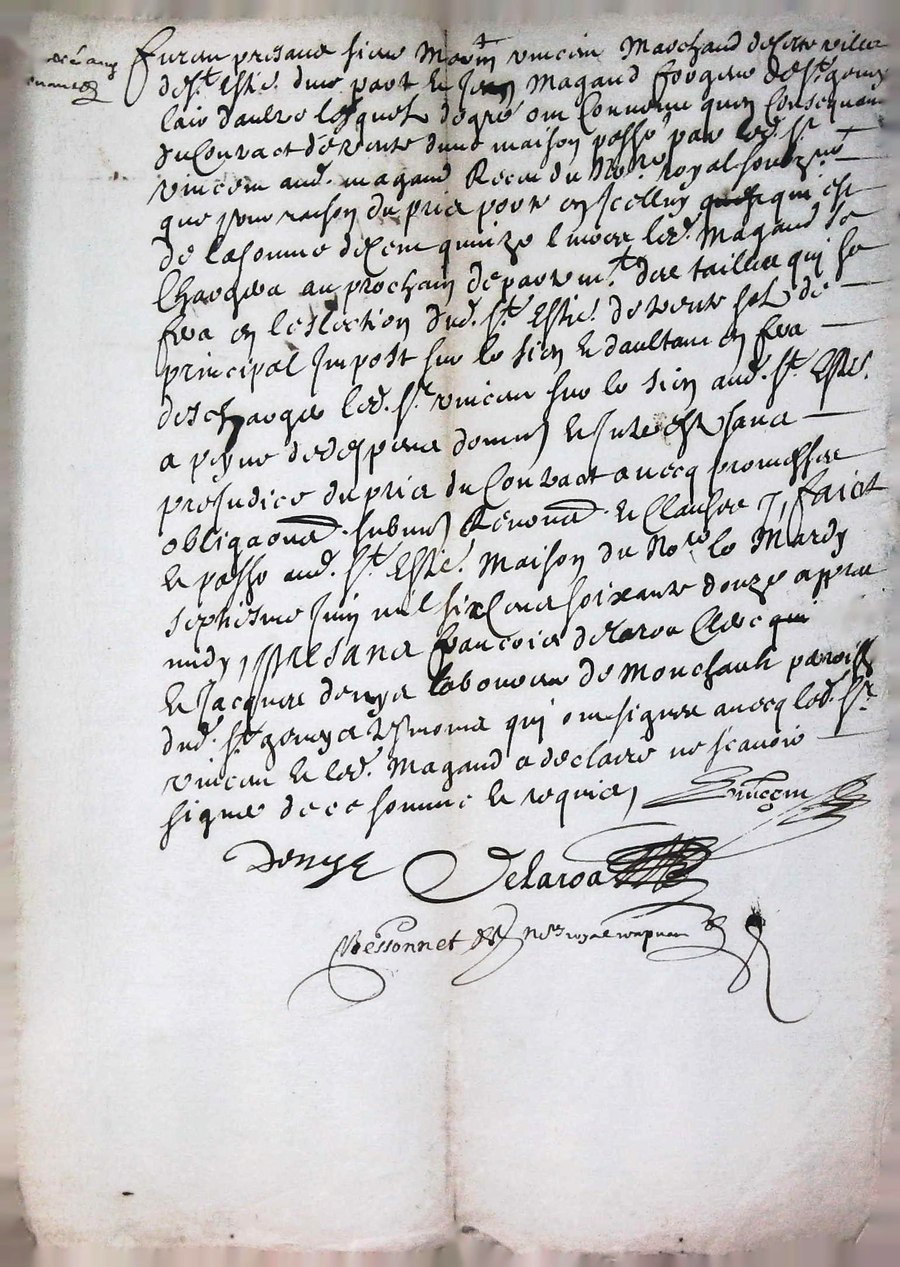 furent presans sieur Martin vincent Marchand de ceste ville
de st. Estie. dune part et Jean Magaud forgeur de st. geneys
lair daultre lesquels de gré ont convenu quen consequance
du Contract de vente dune maison passé par led. sr.
vincent aud. magaud Receu du Nore royal soubzne
que pour raison du prix porté en Icelluy qui est
de la somme de cent quinze livres led. Magaud se
Chargera au prochain departemt. des tailles qui se
fera en leslection dud. st. Estie. de trente solz de
principal Impost sur le sien et daultant en fera
descharger led. sr. vincent sur le sien aud. st. Estie.
a peyne de despens dommes et Interestz sans
prejudice du prix du Contract avecq promesses
obligaons. submions Renonaons. et Clauses faict
et passé aud. st. Estie. Maison du Nore le Mardy
septiesme Juin mil six cens soixante douze appres
midy, presans francois delaroa Clerc
et Jacques denys laboureur de Monchault paroisse
dud. st. geneys tesmoins qui ont signes avecq led. sr.
vincent et led. Magaud a declaire ne scavoir
signer de ce somme et requis,
vincent
Denys
Delaroa
Bessonnet Nore royal